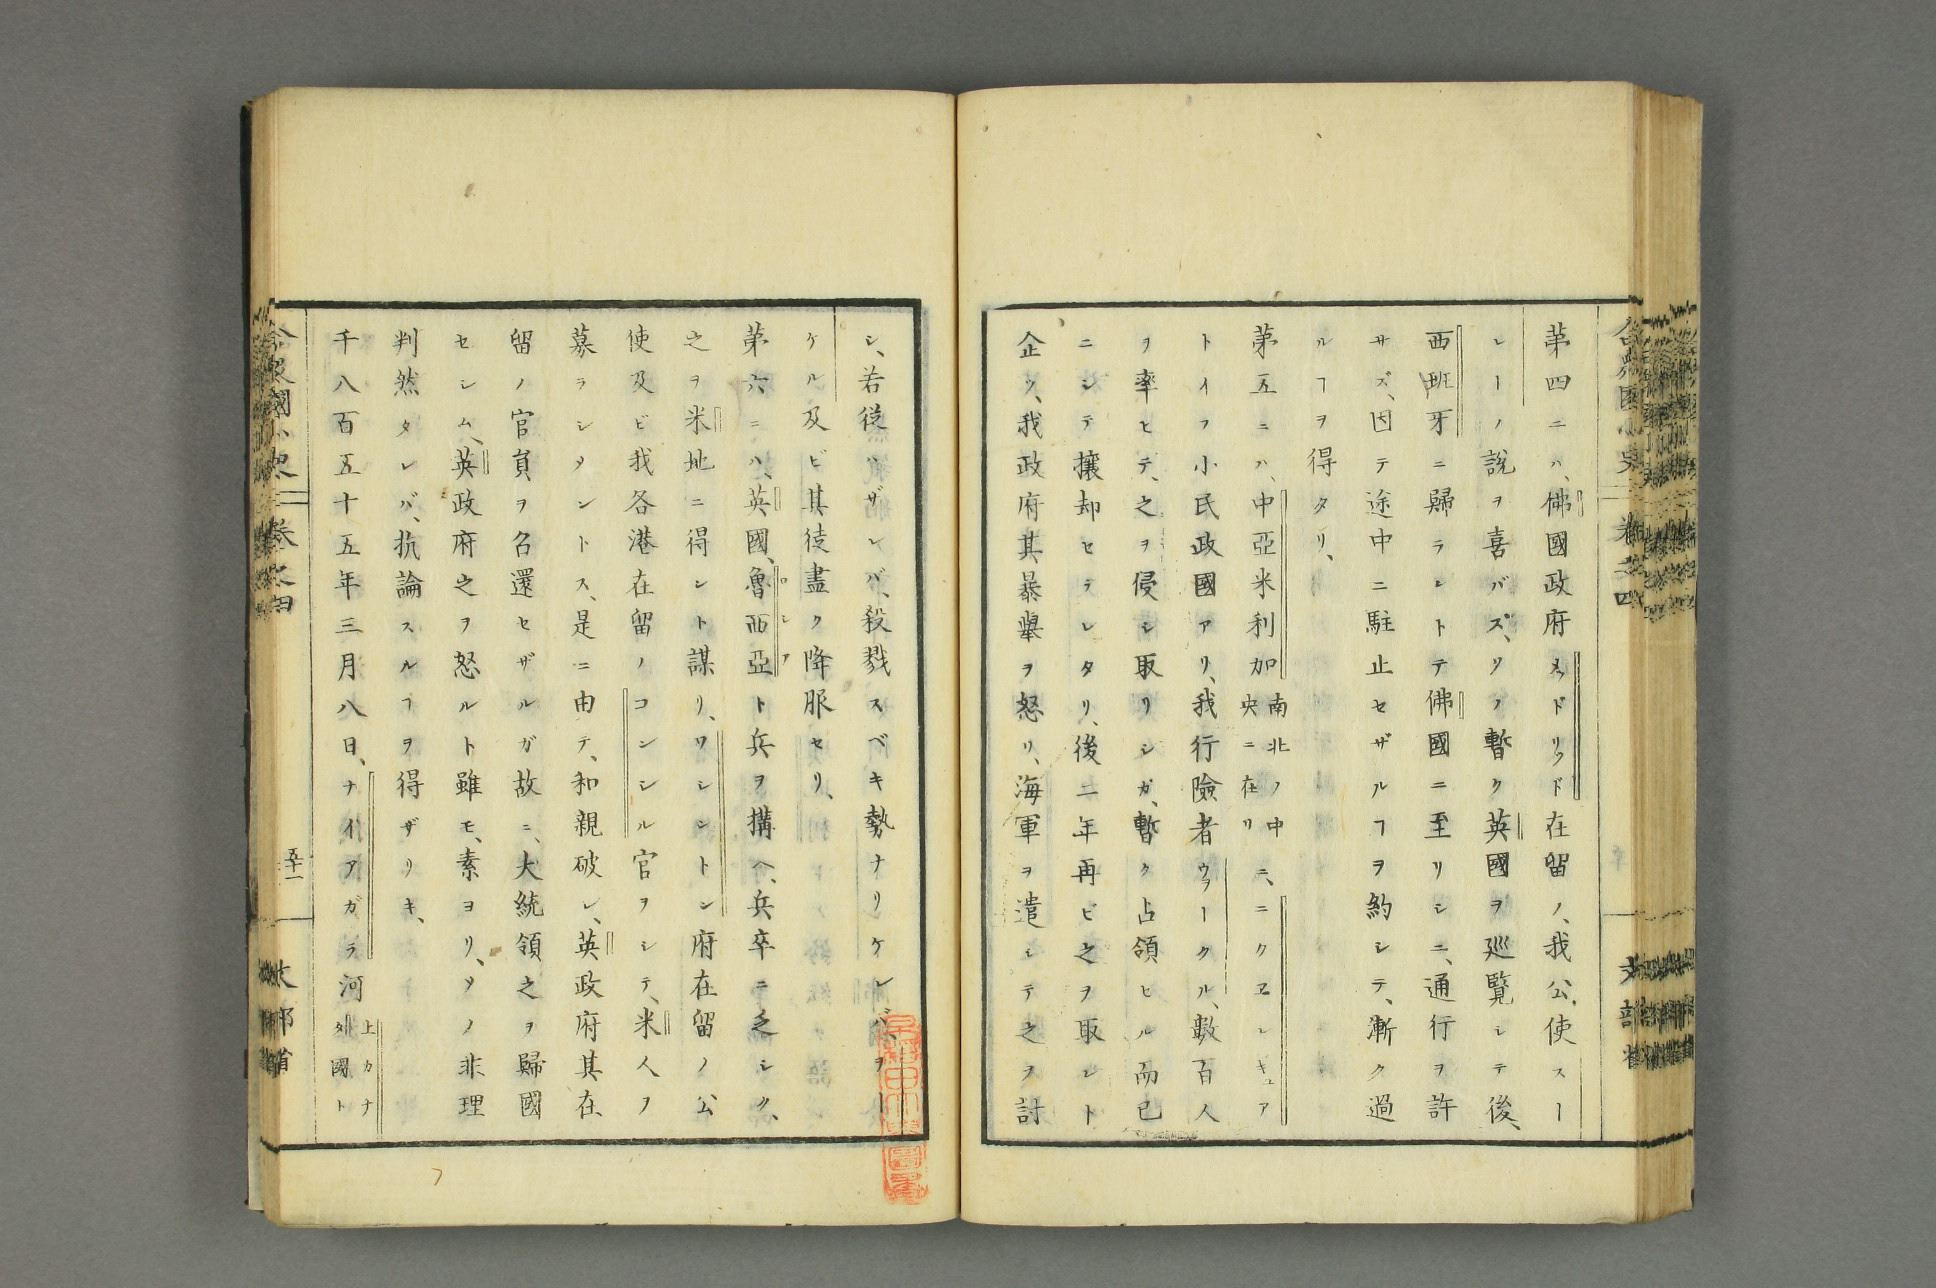 第四ニハ、佛國政府メ﹅ドリ﹅ド在留ノ、我公使スー
レーノ説ヲ喜バズ、ソノ暫ク英國ヲ巡覧シテ後、
西班牙ニ歸ラントテ佛國ニ至リシニ、通行ヲ許
サズ、因テ途中ニ駐止セザルヿヲ約シテ、漸ク過
ルヿヲ得タリ、
第五ニハ、中亞米利加南北ノ中央ニ在リニ、ニクヱレギュア
トイフ小民政國アリ、我行險者ウヲークル、數百人
ヲ率ヒテ、之ヲ侵シ取リシガ、暫ク占領ヒル而已
ニシテ攘却セラレタリ、後二年再ビ之ヲ取ント
企ツ、我政府其暴舉ヲ怒リ、海軍ヲ遣シテ之ヲ討
シ、若從ハザレバ、殺戮スベキ勢ナリケレバ、ヲー
ケル及ビ其徒盡ク降服セリ、
第六ニハ、英國、魯西亞ト兵ヲ搆ヘ、兵卒ニ乏シク、
之ヲ米地ニ得ント謀リ、ワシントン府在留ノ公
使及ビ我各港在留ノコンシル官ヲシテ、米人ヲ
募ラシメントス、是ニ由テ、和親破レ、英政府其在
留ノ官員ヲ召還セザルガ故ニ、大統領之ヲ歸國
セシム、英政府之ヲ怒ルト雖モ、素ヨリ、ソノ非理
判然タレバ、抗論スルヿヲ得ザリキ、
千八百五十五年三月八日、ナイアガラ河上カナタ國ト
合衆國小史 卷之四
五十一
文部省